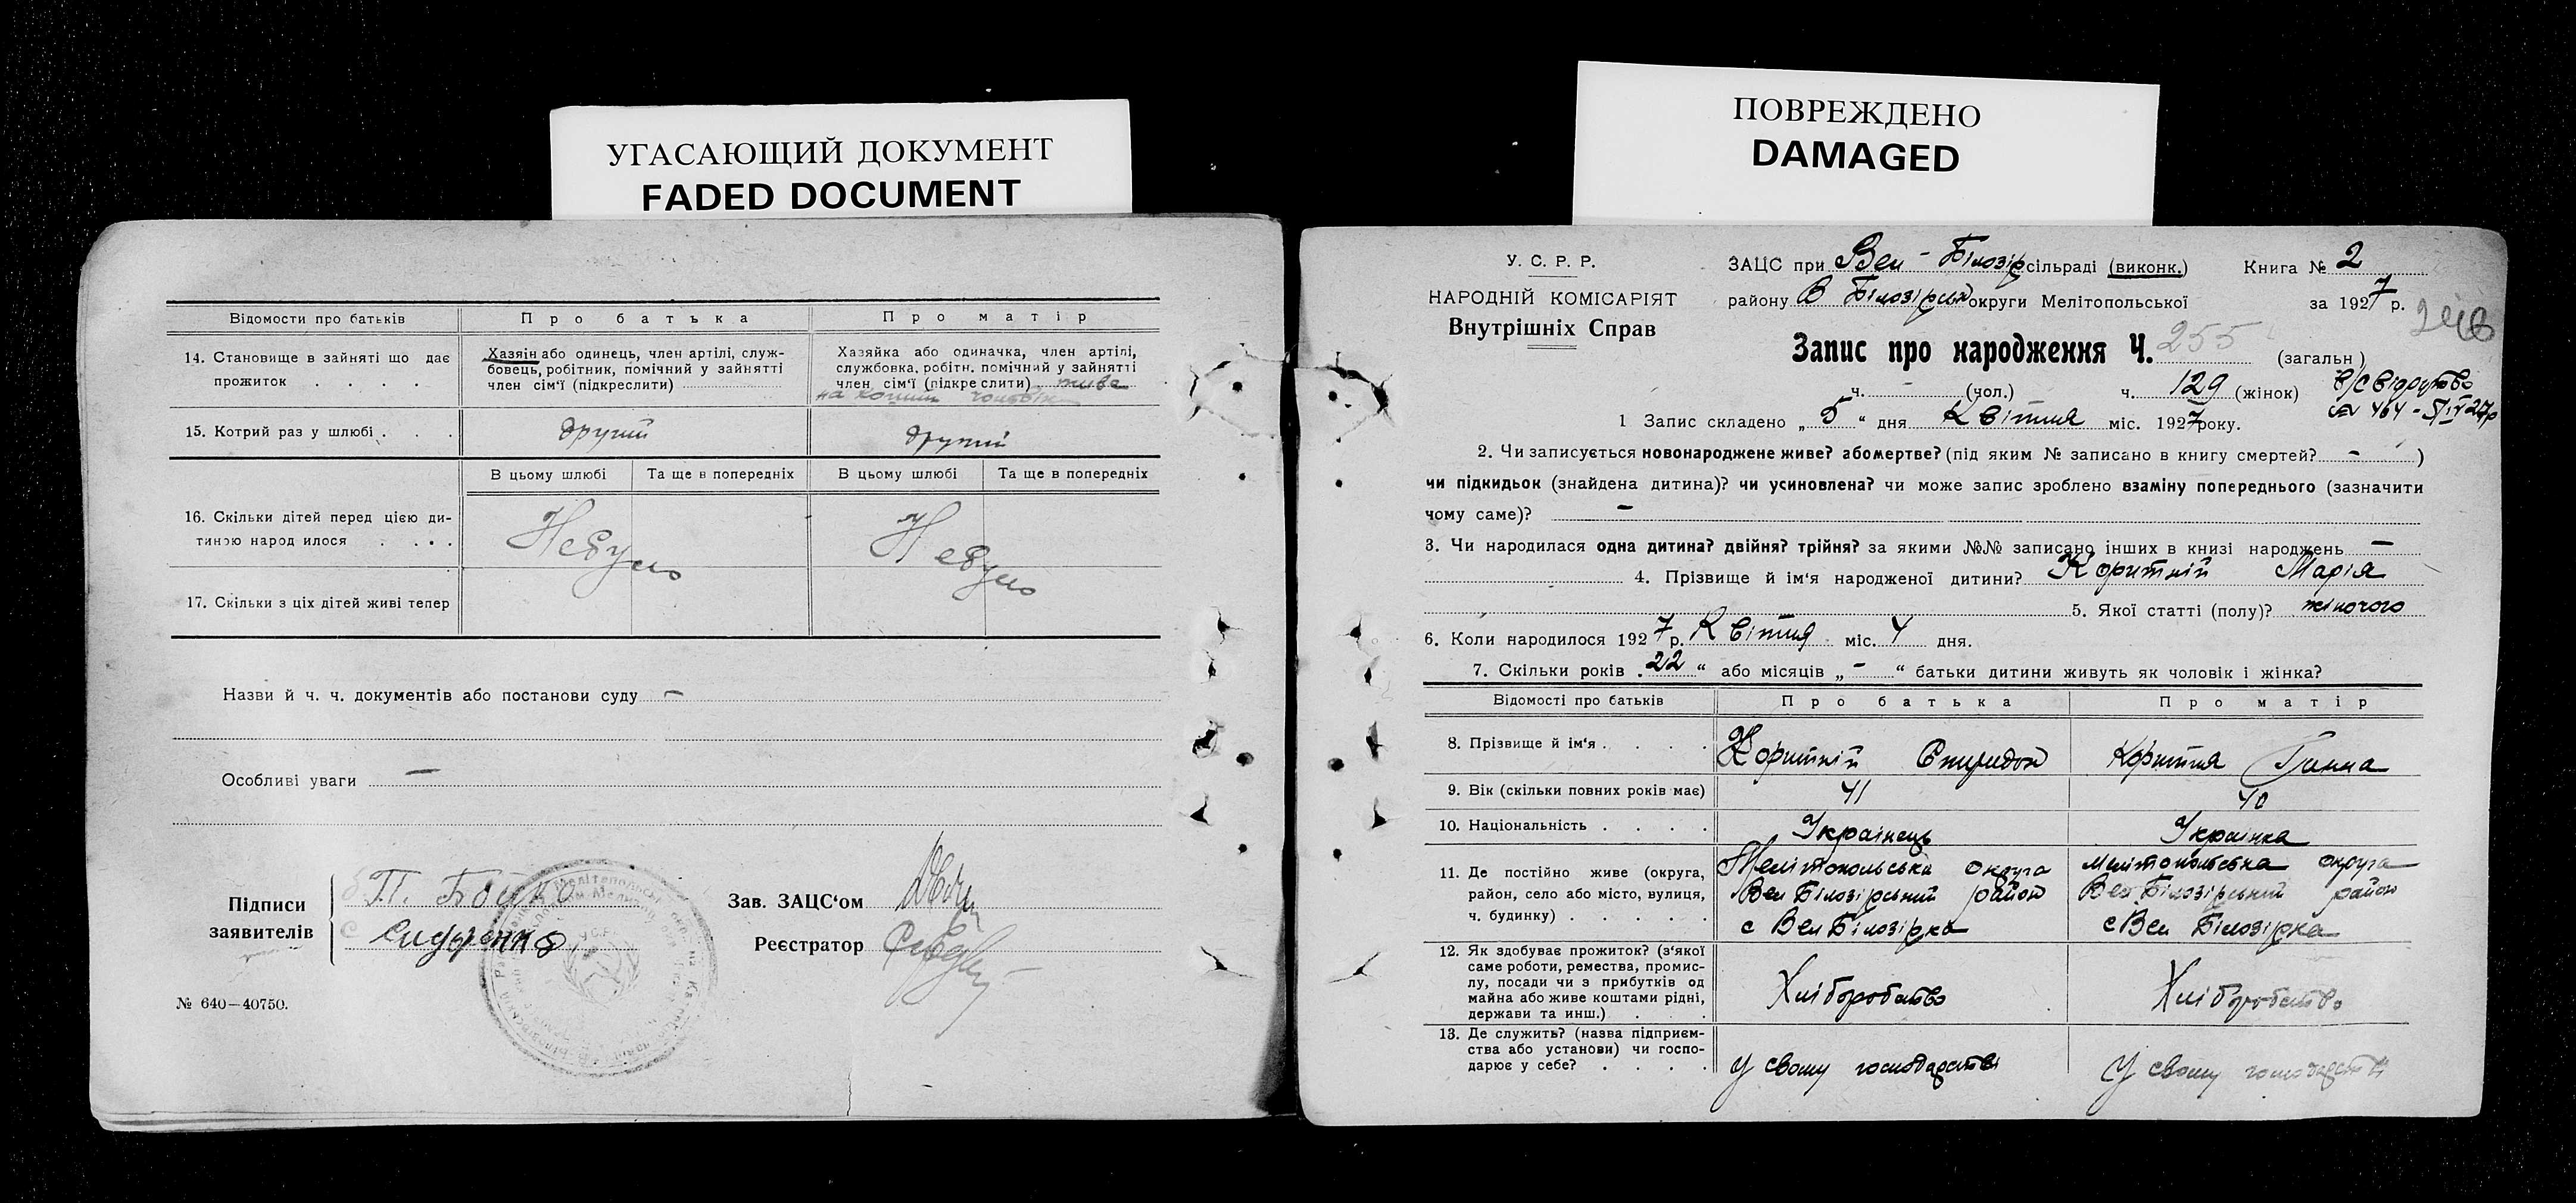 УГАСАЮЩИЙ ДОКУМЕНТ
FADED DOCUMENT
Відомости про батьків Про батька Про матір
14. Становище в зайняті що дає прожиток . . . .
Хазяін або одинець, член артілі, служ-
бовець, робітник, помічний у зайнятті
член сім'ї (підкреслити)
Хазяйка або одиначка, член артілі,
службовка, робітн. помічний у зайнятті
член сім'ї (підкреслити) живе
на кошти
15. Котрий раз у шлюбі . . . другий другий
В цьому шлюбі Та ще в попередніх В цьому шлюбі Та ще в попередніх
16. Скільки дітей перед цією ди-
тиною народилося . . . . Небуло Небуло
17. Скільки з ціх дітей живі тепер
Назви й ч. ч. документів або постанови суду —
Особливі уваги —
Підписи
заявителів
П. Бойко
Сидоренко
Зав. ЗАЦС'ом
Реєстратор
№ 640—40750.
ПОВРЕЖДЕНО
DAMAGED
У. С. Р. Р.
НАРОДНІЙ КОМІСАРІЯТ
Внутрішніх Справ
ЗАЦС при Вел-Білозір сільраді (виконк.) Книга № 2
району В Білозірськ округи Мелітопольської за 1927 р.
Запис про народження Ч. 255 (загальн)
ч. - (чол.) ч. 129 (жінок)
1 Запис складено „ 5 “ дня Квітня міс. 1927 року.
2. Чи записується новонароджене живе? або мертве? (під яким № записано в книгу смертей? - )
чи підкидьок (знайдена дитина)? чи усиновлена? чи може запис зроблено взаміну попереднього (зазначити
чому саме)? -
3. Чи народилася одна дитина? двійня? трійня? за якими №№ записано інших в книзі народжень -
4. Прізвище й ім'я народженої дитини? Коритній Марія
5. Якої статті (полу)? жіночого
6. Коли народилося 1927 р. Квітня міс. 4 дня.
7. Скільки років 22 “ або місяців „ - “ батьки дитини живуть як чоловік і жінка?
Відомості про батьків Про батька Про матір
8. Прізвище й ім'я . . . . Коритній Спиридон Коритня Ганна
9. Вік (скільки повних років має) 41 40
10. Національність . . . . Українець Українка
11. Де постійно живе (округа,
район, село або місто, вулиця,
ч. будинку) . . . . .
Мелітопольська округа
Вел Білозірський район
с Вел Білозірка
Мелітопольська округа
Вел Білозірський район
с Вел Білозірка
12. Як здобуває прожиток? (з'якої
саме роботи, ремества, промис-
лу, посади чи з прибутків од
майна або живе коштами рідні,
держави та инш.) . . .
Хліборобство
Хліборобство
13. Де служить? (назва підприєм-
ства або установи) чи госпо-
дарює у себе? . . . .
У свому господарстві
У свому господарстві